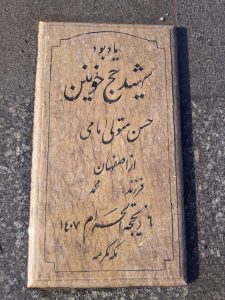 یادبود
شهید حج خونین
حسن متولی نامی
از اصفهان
فرزند: محمد
۶ ذیحجه الحرام ۱۴۰۷
مکه مکرمه